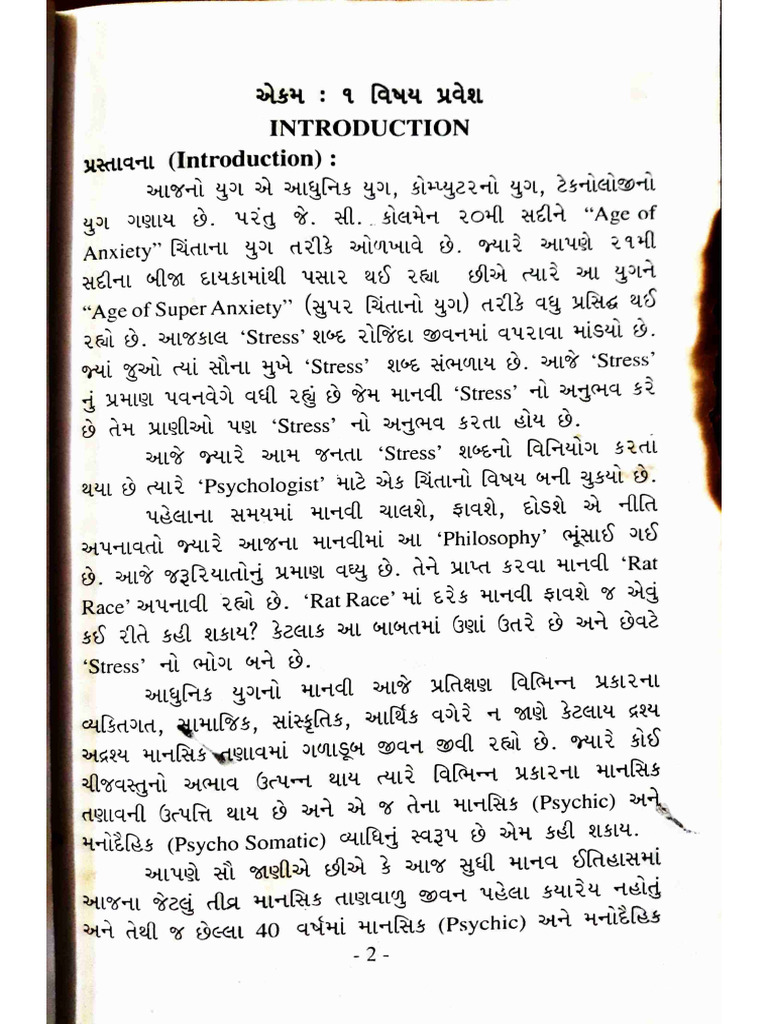 એકમ : ૧ વિષય પ્રવેશ
INTRODUCTION
પ્રસ્તાવના (Introduction) :
આજનો યુગ એ આધુનિક યુગ, કોમ્પ્યુટરનો યુગ, ટેકનોલોજીનો
યુગ ગણાય છે. પરંતુ જે. સી. કોલમેન ૨૦મી સદીને “Age of
Anxiety” ચિંતાના યુગ તરીકે ઓળખાવે છે. જ્યારે આપણે ૨૧મી
સદીના બીજા દાયકામાંથી પસાર થઈ રહ્યા છીએ ત્યારે આ યુગને
“Age of Super Anxiety” (સુપર ચિંતાનો યુગ) તરીકે વધુ પ્રસિદ્ધ થઈ
રહ્યો છે. આજકાલ ‘Stress’ શબ્દ રોજિંદા જીવનમાં વપરાવા માંડયો છે.
જ્યાં જુઓ ત્યાં સૌના મુખે ‘Stress’ શબ્દ સંભળાય છે. આજે ‘Stress’
નું પ્રમાણ પવનવેગે વધી રહ્યું છે જેમ માનવી ‘Stress’ નો અનુભવ કરે
છે તેમ પ્રાણીઓ પણ ‘Stress’ નો અનુભવ કરતા હોય છે.
આજે જ્યારે આમ જનતા ‘Stress’ શબ્દનો વિનિયોગ કરતાં
થયા છે ત્યારે ‘Psychologist’ માટે એક ચિંતાનો વિષય બની ચુકયો છે.
પહેલાના સમયમાં માનવી ચાલશે, ફાવશે, દોડશે એ નીતિ
અપનાવતો જ્યારે આજના માનવીમાં આ ‘Philosophy’ ભૂંસાઈ ગઈ
છે. આજે જરૂરિયાતોનું પ્રમાણ વધ્યુ છે. તેને પ્રાપ્ત કરવા માનવી ‘Rat
Race’ અપનાવી રહ્યો છે. ‘Rat Race’ માં દરેક માનવી ફાવશે જ એવું
કઈ રીતે કહી શકાય? કેટલાક આ બાબતમાં ઉણાં ઉતરે છે અને છેવટે
‘Stress’ નો ભોગ બને છે.
આધુનિક યુગનો માનવી આજે પ્રતિક્ષણ વિભિન્ન પ્રકારના
વ્યકિતગત, સામાજિક, સાંસ્કૃતિક, આર્થિક વગેરે ન જાણે કેટલાય દ્રશ્ય
અદ્રશ્ય માનસિક તણાવમાં ગળાડૂબ જીવન જીવી રહ્યો છે. જ્યારે કોઈ
ચીજવસ્તુનો અભાવ ઉત્પન્ન થાય ત્યારે વિભિન્ન પ્રકારના માનસિક
તણાવની ઉત્પત્તિ થાય છે અને એ જ તેના માનસિક (Psychic) અને
મનોદૈહિક (Psycho Somatic) વ્યાધિનું સ્વરૂપ છે એમ કહી શકાય.
આપણે સૌ જાણીએ છીએ કે આજ સુધી માનવ ઈતિહાસમાં
આજના જેટલું તીવ્ર માનસિક તાણવાળુ જીવન પહેલા કયારેય નહોતું
અને તેથી જ છેલ્લા 40 વર્ષમાં માનસિક (Psychic) અને મનોદૈહિક
- 2 -